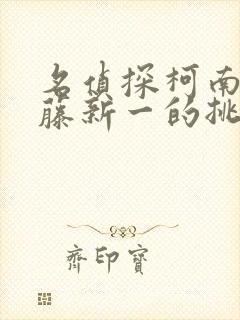 名偵探柯南
藤新一的挑
齊印寶